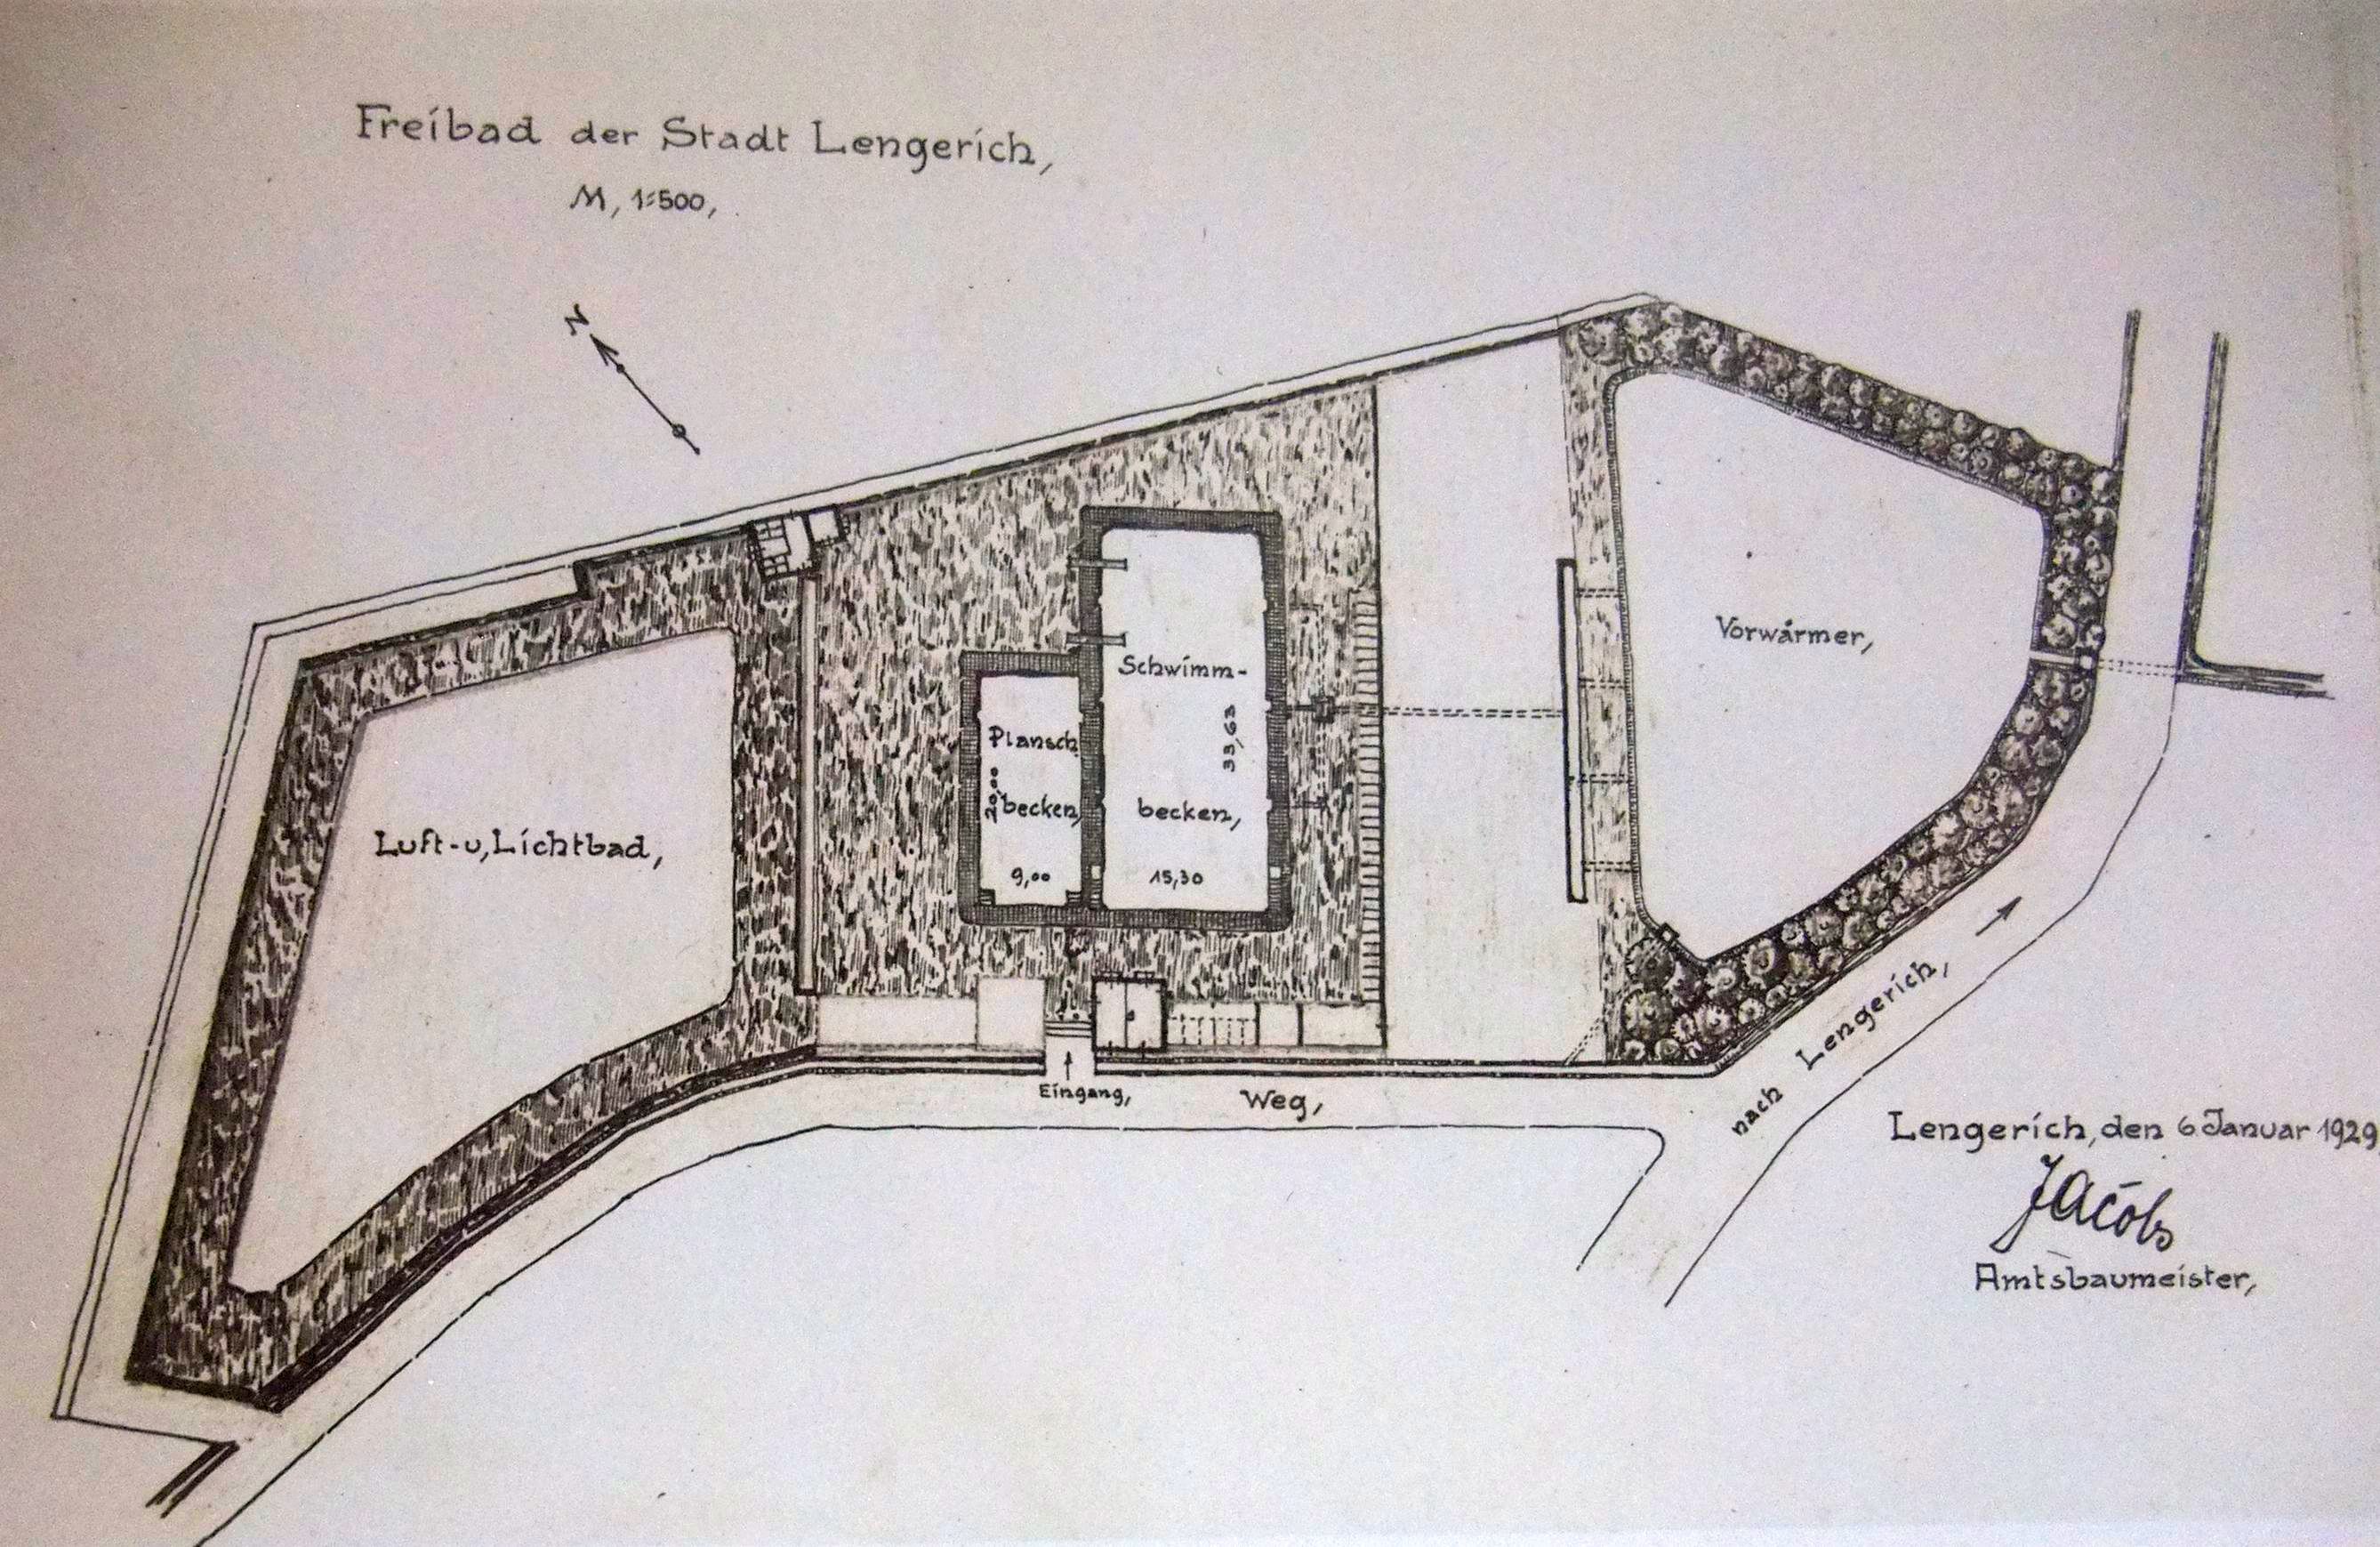 Freibad der Stadt Lengerich,
M, 1:500,
N
Luft-u, Lichtbad,
Plansch
becken,
20,00
9,00
Schwimm-
becken,
33,63
15,30
Vorwärmer,
Eingang,
Weg,
nach Lengerich,
Lengerich, den 6. Januar 1929
Jacobs
Amtsbaumeister,